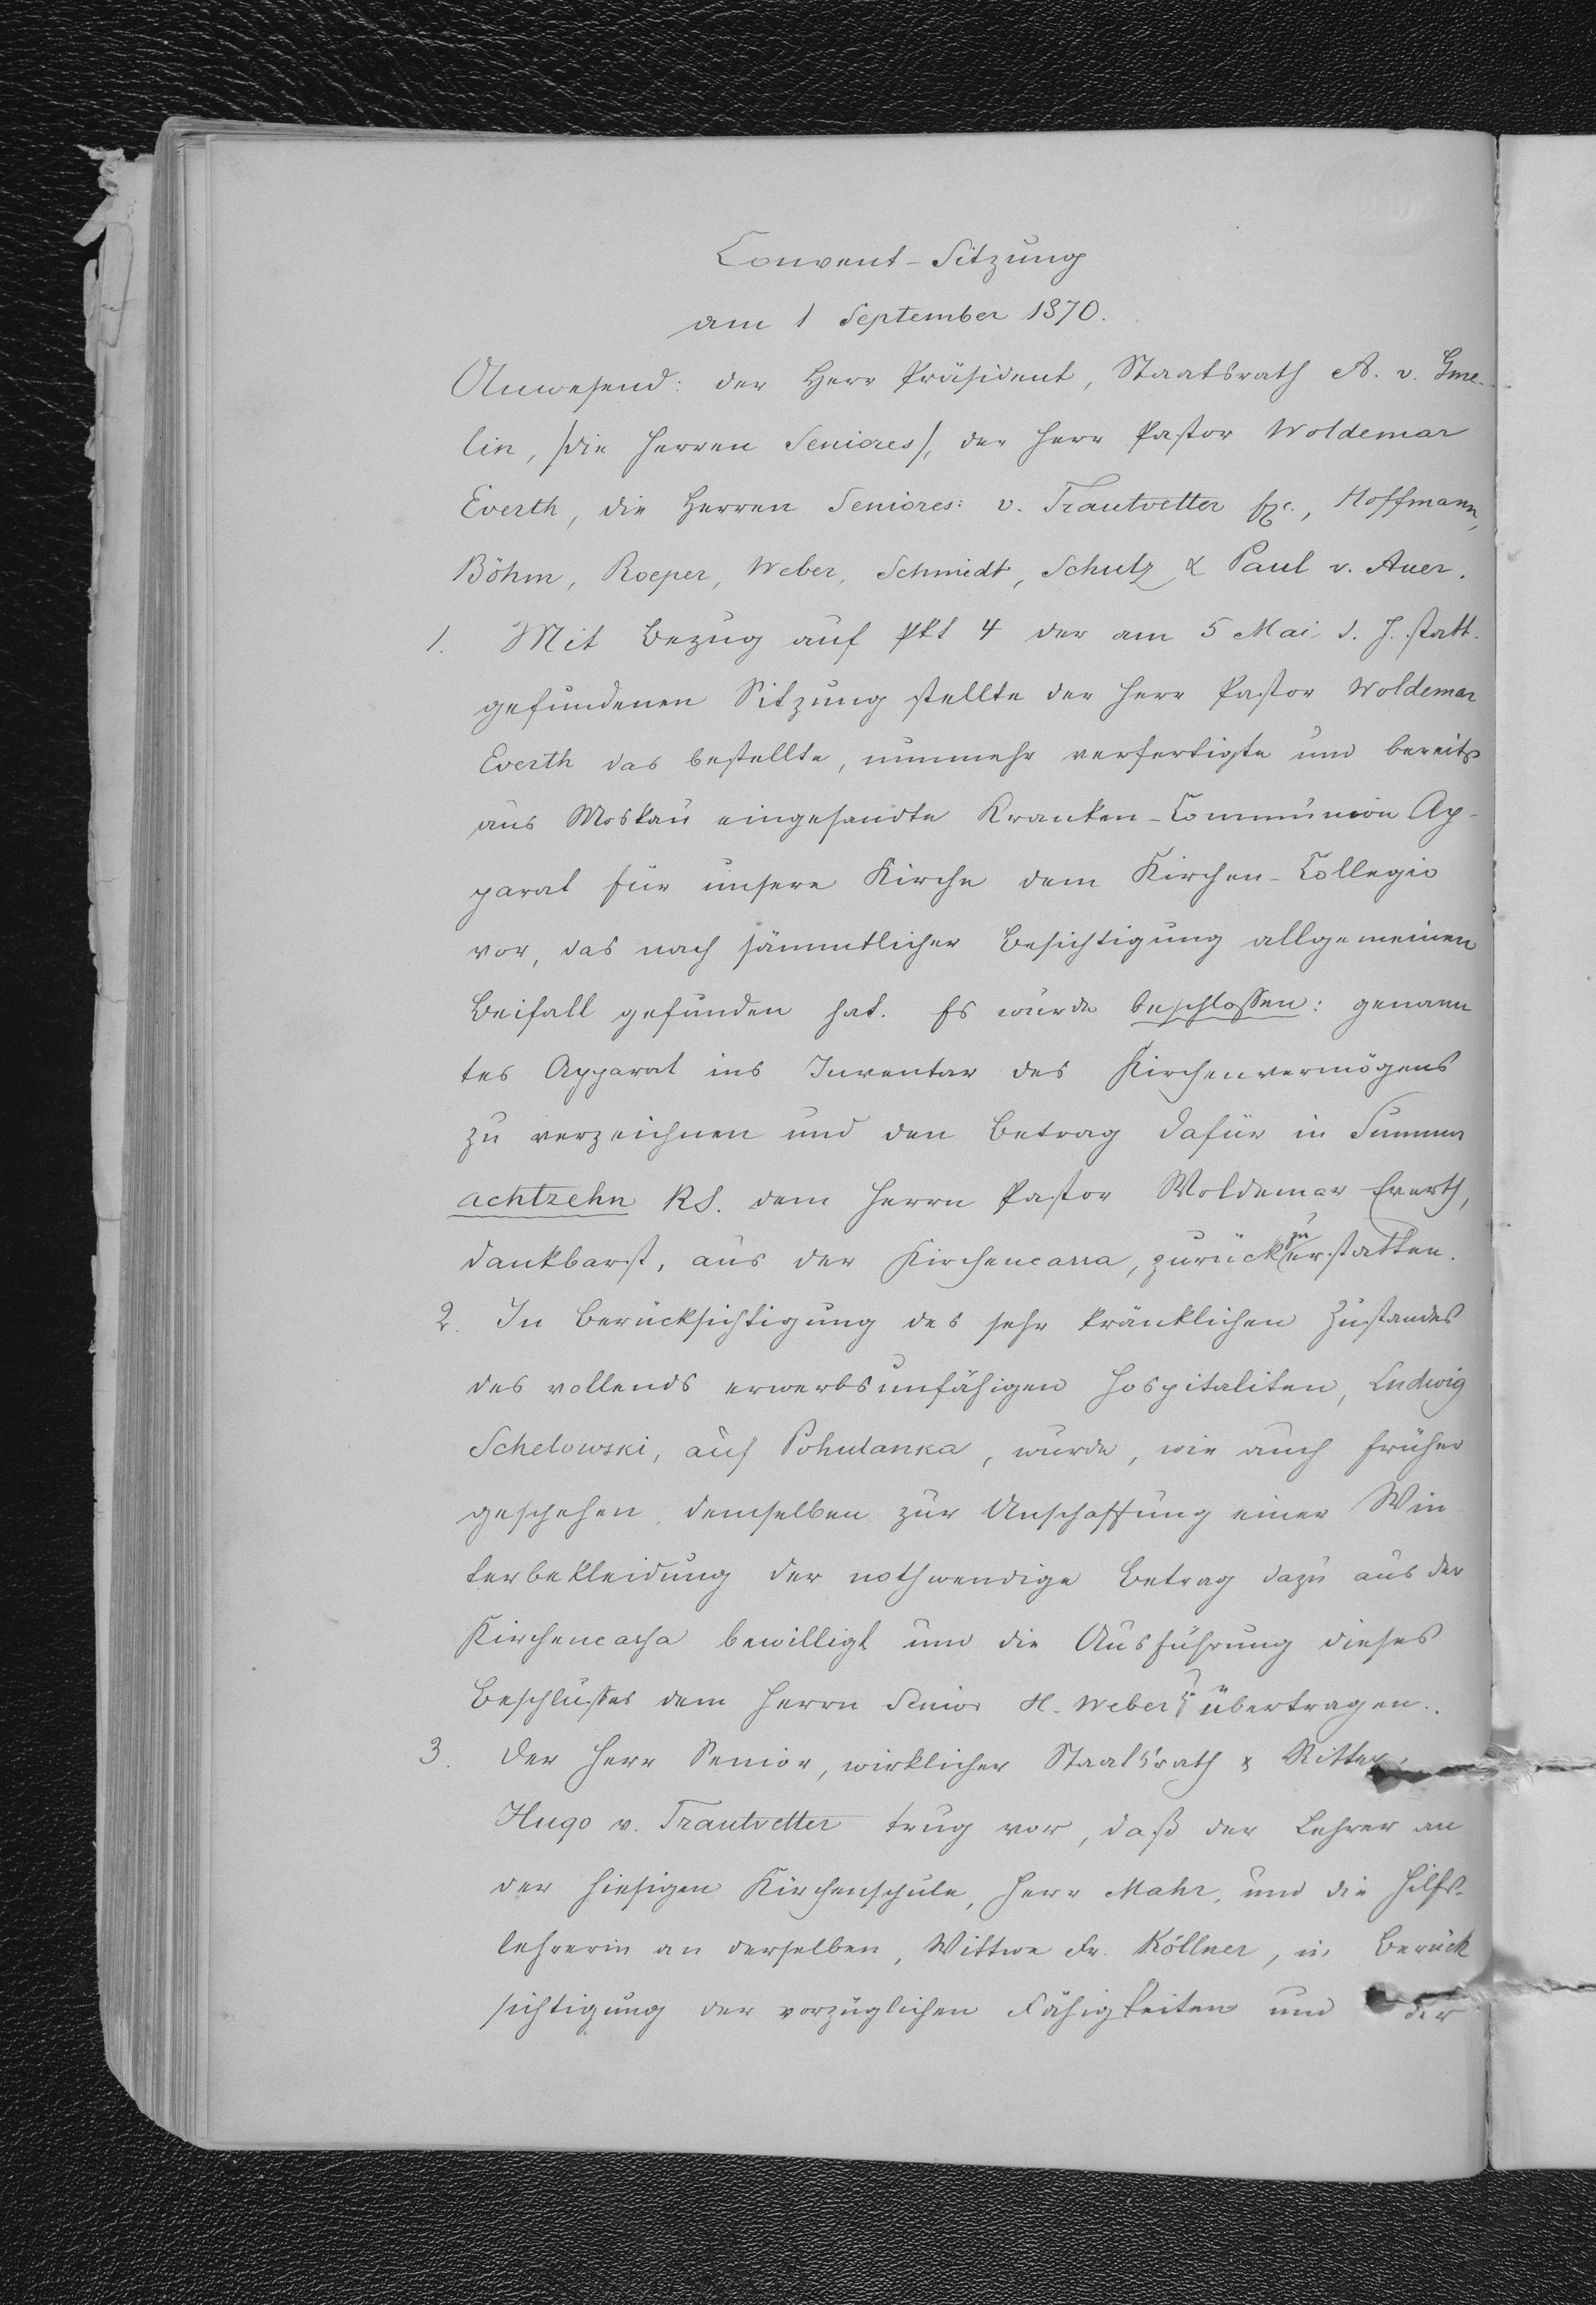 Convent-Sitzung
am 1 September 1870.
Anwesend: der Herr Präsident, Staatsrath A. v. Gme-
lin, /die Herren Seniores/, der Herr Pastor Woldemar
Everth, die Herren Seniores: v. Trautvetter, Hoffmann,
Böhm, Roeper, Weber, Schmidt, Schulz & Paul v. Auer.
1. Mit Bezug auf Pkt 4 der am 5 Mai d. J. statt-
gefundenen Sitzung stellte der Herr Pastor Woldemar
Everth das bestellte, nunmehr verfertigte und bereits
aus Moskau eingesandte Kranken-Communion Ap-
parat für unsere Kirche dem Kirchen-Collegio
vor, das nach sämmtlicher Besichtigung allgemeinen
Beifall gefunden hat. Es wurde beschlossen: genann
tes Apparat ins Inventar des Kirchenvermögens
zu verzeichnen und den Betrag dafür in Summa
achtzehn RS. dem Herrn Pastor Woldemar Everth,
dankbarst, aus der Kirchencassa, zurückzuerstatten.
2. In Berücksichtigung des sehr kränklichen Zustandes
des vollends erwerbsunfähigen Hospitaliten, Ludwig
Schelowski, auf Pohulanka, wurde, wie auch früher
geschehen, demselben zur Anschaffung einer Win-
terbekleidung der nothwendige Betrag dazu aus der
Kirchencassa bewilligt und die Ausführung dieses
Beschlusses dem Herrn Senior H. Weber übertragen.
3. Der Herr Senior, wirklicher Staatsrath & Ritter,
Hugo v. Trautvetter trug vor, daß der Lehrer an
der hiesigen Kirchenschule, Herr Mahr, und die Hilfs-
lehrerin an derselben, Wittwe Fr. Köllner, in Berück
sichtigung der vorzüglichen Fähigkeiten und der